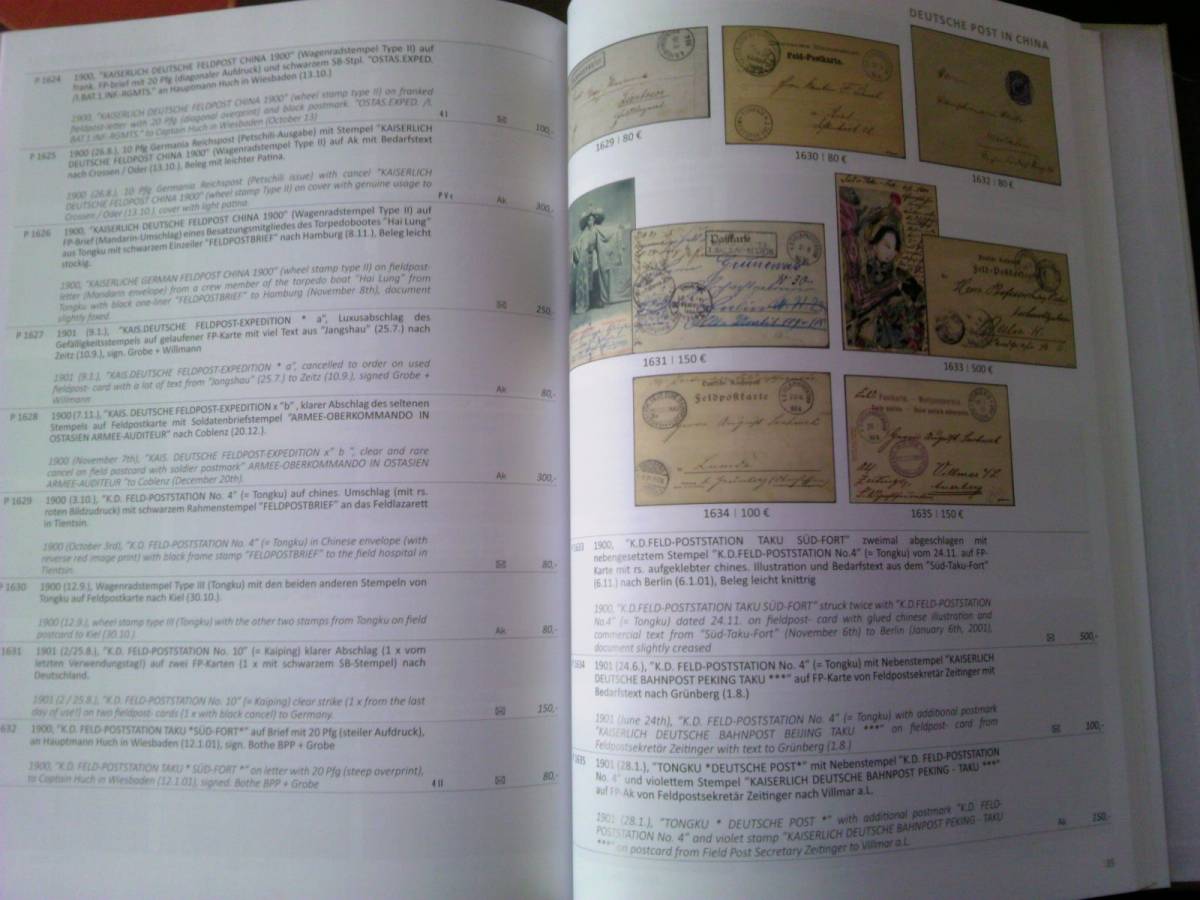 P 1624
1900, "KAISERLICH DEUTSCHE FELDPOST CHINA 1900" (Wagenradstempel Type II) auf
frank. FP-brief mit 20 Pfg (diagonaler Aufdruck) und schwarzem SB-Stpl. "OSTAS.EXPED.
/I.BAT.1.INF.-RGMTS." an Hauptmann Huch in Wiesbaden (13.10.)
1900, "KAISERLICH DEUTSCHE FELDPOST CHINA 1900" (wheel stamp type II) on franked
fieldpost-letter with 20 Pfg (diagonal overprint) and black postmark. "OSTAS.EXPED. /I.
BAT.1.INF.-RGMTS." to Captain Huch in Wiesbaden (October 13)
4 I 100,-
P 1625
1900 (26.8.), 10 Pfg Germania Reichspost (Petschili-Ausgabe) mit Stempel "KAISERLICH
DEUTSCHE FELDPOST CHINA 1900" (Wagenradstempel Type II) auf Ak mit Bedarfstext
nach Crossen / Oder (13.10.), Beleg mit leichter Patina.
1900 (26.8.), 10 Pfg Germania Reichspost (Petschili issue) with cancel "KAISERLICH
DEUTSCHE FELDPOST CHINA 1900" (wheel stamp Type II) on cover with genuine usage to
Crossen / Oder (13.10.), cover with light patina.
P V c Ak 300,-
P 1626
1900, "KAISERLICH DEUTSCHE FELDPOST CHINA 1900" (Wagenradstempel Type II) auf
FP-Brief (Mandarin-Umschlag) eines Besatzungsmitgliedes des Torpedobootes "Hai Lung"
aus Tongku mit schwarzem Einzeiler "FELDPOSTBRIEF" nach Hamburg (8.11.), Beleg leicht
stockig.
1900, "KAISERLICHE GERMAN FELDPOST CHINA 1900" (wheel stamp type II) on fieldpost-
letter (Mandarin envelope) from a crew member of the torpedo boat "Hai Lung" from
Tongku with black one-liner "FELDPOSTBRIEF" to Hamburg (November 8th), document
slightly foxed.
250,-
P 1627
1901 (9.1.), "KAIS.DEUTSCHE FELDPOST-EXPEDITION * a", Luxusabschlag des
Gefälligkeitsstempels auf gelaufener FP-Karte mit viel Text aus "Jangshau" (25.7.) nach
Zeitz (10.9.), sign. Grobe + Willmann
1901 (9.1.), "KAIS.DEUTSCHE FELDPOST-EXPEDITION * a", cancelled to order on used
fieldpost- card with a lot of text from "Jangshau" (25.7.) to Zeitz (10.9.), signed Grobe +
Willmann
Ak 80,-
P 1628
1900 (7.11.), "KAIS. DEUTSCHE FELDPOST-EXPEDITION x "b" , klarer Abschlag des seltenen
Stempels auf Feldpostkarte mit Soldatenbriefstempel "ARMEE-OBERKOMMANDO IN
OSTASIEN ARMEE-AUDITEUR" nach Coblenz (20.12.).
1900 (November 7th), "KAIS. DEUTSCHE FELDPOST-EXPEDITION x" b ", clear and rare
cancel on field postcard with soldier postmark" ARMEE-OBERKOMMANDO IN OSTASIEN
ARMEE-AUDITEUR "to Coblenz (December 20th).
Ak 300,-
P 1629
1900 (3.10.), "K.D. FELD-POSTSTATION No. 4" (= Tongku) auf chines. Umschlag (mit rs.
roten Bildzudruck) mit schwarzem Rahmenstempel "FELDPOSTBRIEF" an das Feldlazarett
in Tientsin.
1900 (October 3rd), "K.D. FELD-POSTSTATION No. 4" (= Tongku) in Chinese envelope (with
reverse red image print) with black frame stamp "FELDPOSTBRIEF" to the field hospital in
Tientsin.
80,-
P 1630
1900 (12.9.), Wagenradstempel Type III (Tongku) mit den beiden anderen Stempeln von
Tongku auf Feldpostkarte nach Kiel (30.10.).
1900 (12.9.), wheel stamp type III (Tongku) with the other two stamps from Tongku on field
postcard to Kiel (30.10.).
Ak 80,-
1631
1901 (2/25.8.), "K.D. FELD-POSTSTATION No. 10" (= Kaiping) klarer Abschlag (1 x vom
letzten Verwendungstag!) auf zwei FP-Karten (1 x mit schwarzem SB-Stempel) nach
Deutschland.
1901 (2 / 25.8.), "K.D. FELD-POSTSTATION No. 10" (= Kaiping) clear strike (1 x from the last
day of use!) on two fieldpost- cards (1 x with black cancel) to Germany.
150,-
632
1900, "K.D. FELD-POSTSTATION TAKU *SÜD-FORT*" auf Brief mit 20 Pfg (steiler Aufdruck),
an Hauptmann Huch in Wiesbaden (12.1.01), sign. Bothe BPP + Grobe
1900, "K.D. FELD-POSTSTATION TAKU * SÜD-FORT *" on letter with 20 Pfg (steep overprint),
to Captain Huch in Wiesbaden (12.1.01), signed. Bothe BPP + Grobe
4 II 80,-
DEUTSCHE POST IN CHINA
Feld-Postkarte.
1629 | 80 €
1630 | 80 €
1632 | 80 €
Postkarte
1631 | 150 €
Feld-Postkarte
1633 | 500 €
Feldpostkarte
1634 | 100 €
1635 | 150 €
P 1633
1900, "K.D.FELD-POSTSTATION TAKU SÜD-FORT" zweimal abgeschlagen mit
nebengesetztem Stempel "K.D.FELD-POSTSTATION No.4" (= Tongku) vom 24.11. auf FP-
Karte mit rs. aufgeklebter chines. Illustration und Bedarfstext aus dem "Süd-Taku-Fort"
(6.11.) nach Berlin (6.1.01), Beleg leicht knittrig
1900, "K.D.FELD-POSTSTATION TAKU SÜD-FORT" struck twice with "K.D.FELD-POSTSTATION
No.4" (= Tongku) dated 24.11. on fieldpost- card with glued chinese illustration and
commercial text from "Süd-Taku-Fort" (November 6th) to Berlin (January 6th, 2001),
document slightly creased
500,-
P 1634
1901 (24.6.), "K.D. FELD-POSTSTATION No. 4" (= Tongku) mit Nebenstempel "KAISERLICH
DEUTSCHE BAHNPOST PEKING TAKU ***" auf FP-Karte von Feldpostsekretär Zeitinger mit
Bedarfstext nach Grünberg (1.8.)
1901 (June 24th), "K.D. FELD-POSTSTATION No. 4" (= Tongku) with additional postmark
"KAISERLICH DEUTSCHE BAHNPOST BEIJING TAKU ***" on fieldpost- card from
Feldpostsekretär Zeitinger with text to Grünberg (1.8.)
100,-
P 1635
1901 (28.1.), "TONGKU *DEUTSCHE POST*" mit Nebenstempel "K.D. FELD-POSTSTATION
No. 4" und violettem Stempel "KAISERLICH DEUTSCHE BAHNPOST PEKING - TAKU ***"
auf FP-Ak von Feldpostsekretär Zeitinger nach Villmar a.L.
1901 (28.1.), "TONGKU * DEUTSCHE POST *" with additional postmark "K.D. FELD-
POSTSTATION No. 4" and violet stamp "KAISERLICH DEUTSCHE BAHNPOST PEKING - TAKU
***" on postcard from Field Post Secretary Zeitinger to Villmar a.L.
Ak 150,-
35